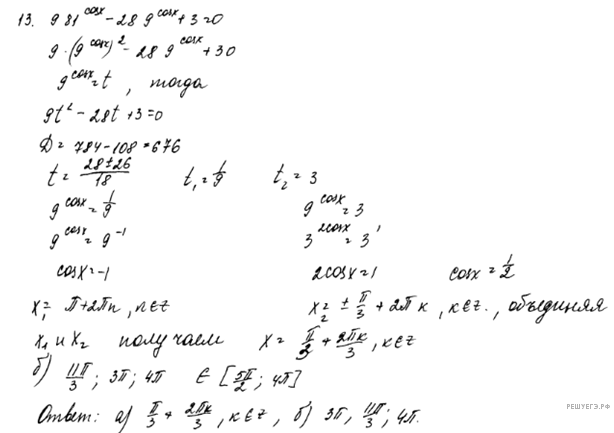 13. 9 81^cosx - 28 9^cosx + 3 = 0
9 · (9^cosx)^2 - 28 9^cosx + 30
9^cosx = t , тогда
9t^2 - 28t + 3 = 0
D = 784 - 108 = 676
t = (28 ± 26)/18 t₁ = 1/9 t₂ = 3
9^cosx = 1/9 9^cosx = 3
9^cosx = 9^-1 3^2cosx = 3^1
cosx = -1 2cosx = 1 cosx = 1/2
x₁ = π + 2πn, n∈z x₂ = ± π/3 + 2πk, k∈z. , объединяя
x₁ и x₂ получаем x = π/3 + 2πk/3, k∈z
б) 11π/3 ; 3π ; 4π ∈ [5π/2 ; 4π]
Ответ: а) π/3 + 2πk/3, k∈z, б) 3π, 11π/3 ; 4π.
РЕШУЕГЭ.РФ